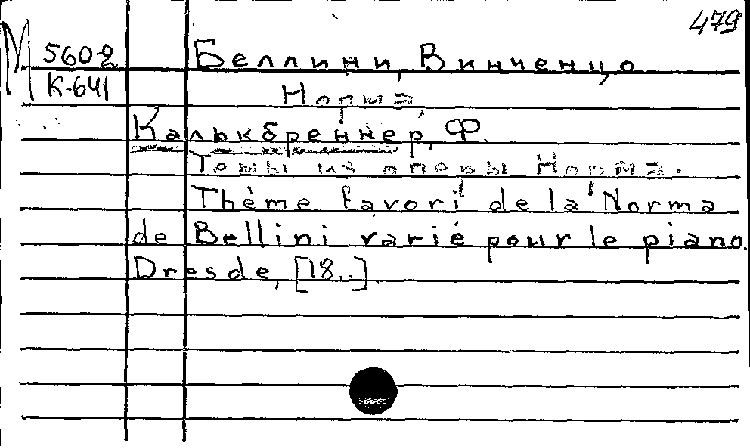 479
М 5602 Беллини, Винченцо
К-641 Норма.
Калькбреннер, Ф.
из оперы Норма.
Thème favori de la Norma
de Bellini varié pour le piano.
Dresde, [18..]